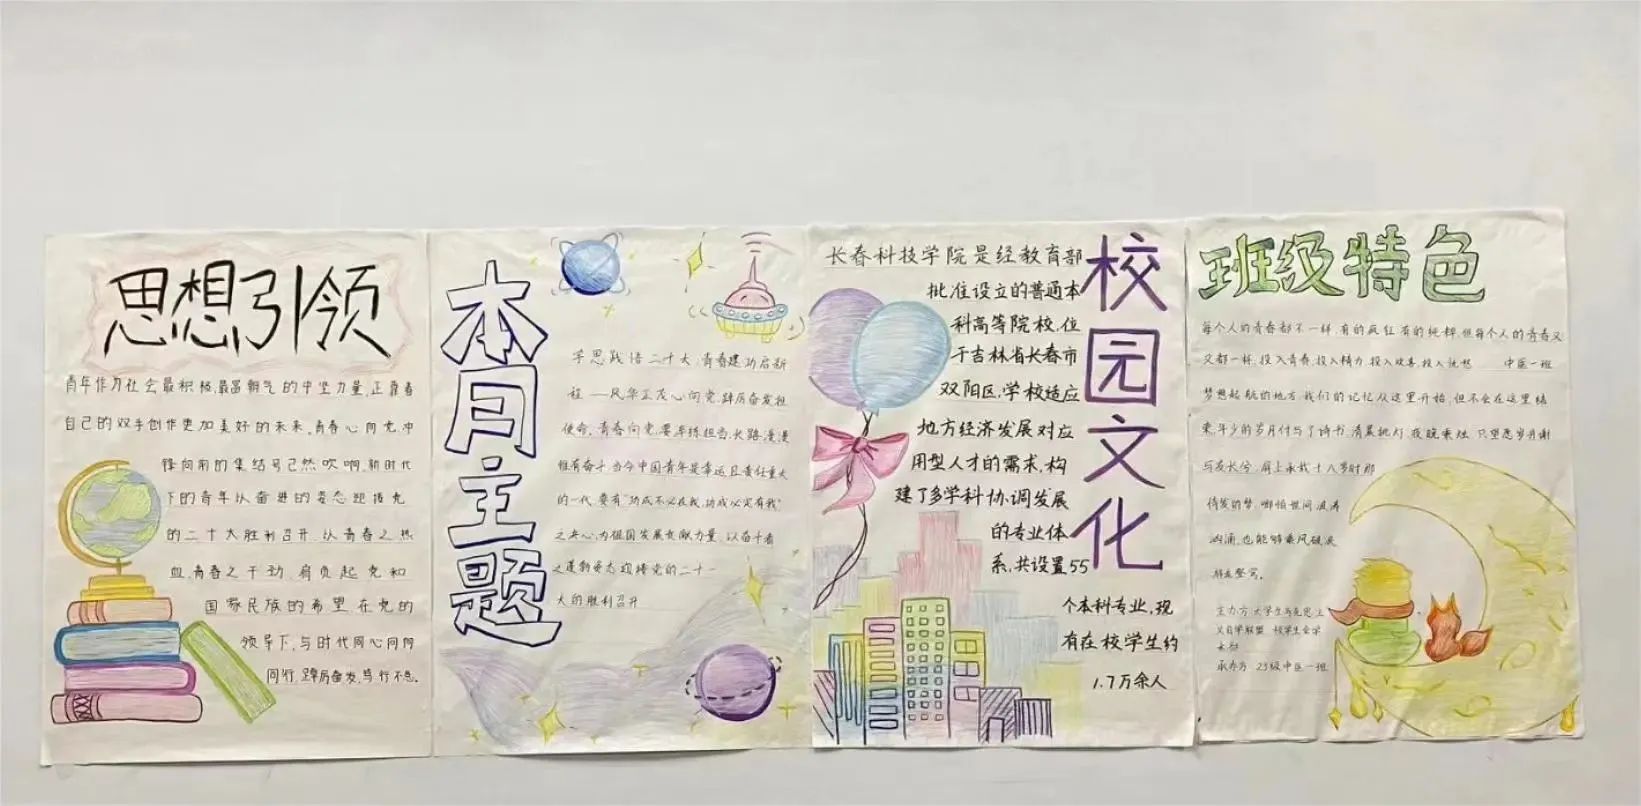 思想引领
青年作为社会最积极、最富朝气的中坚力量,正靠着
自己的双手创作更加美好的未来。青春心向党,冲
锋向前的集结号已然吹响,新时代
下的青年以奋进的姿态迎接党
的二十大胜利召开,以青春之热
血,青春之干劲,肩负起党和
国家民族的希望在党的
领导下,与时代同心同向
同行,踔厉奋发,笃行不怠。
本月主题
学思践悟二十大,青春建功启新
程——风华正茂心向党,踔厉奋发担
使命。青春向党,要淬练担当,长路漫漫
惟有奋斗,当今中国青年是幸运且责任重大
的一代,要有“功成不必在我,功成必定有我”
之决心,为祖国发展贡献力量,以奋斗者
之蓬勃姿态迎接党的二十一
大的胜利召开
校园文化
长春科技学院是经教育部
批准设立的普通本
科高等院校,位
于吉林省长春市
双阳区,学校适应
地方经济发展对应
用型人才的需求,构
建了多学科协调发展
的专业体
系,共设置55
个本科专业,现
有在校学生约
1.7万余人
班级特色
每个人的青春都不一样,有的疯狂,有的纯粹,但每个人的青春又
又都一样,投入青春,投入精力,投入欢喜,投入 中医一班
梦想起航的地方,我们的记忆从这里开始,但不会在这里结
束,年少的岁月付与了诗书,清晨挑灯,夜晚秉烛,只望愿岁并谢
与友长兮,肩上承载十八岁时那
待发的梦,哪怕世间波涛
汹涌,也能够乘风破浪
主办方:大学生马克思主
义自学联盟 校学生会学
承办方 23级中医一班